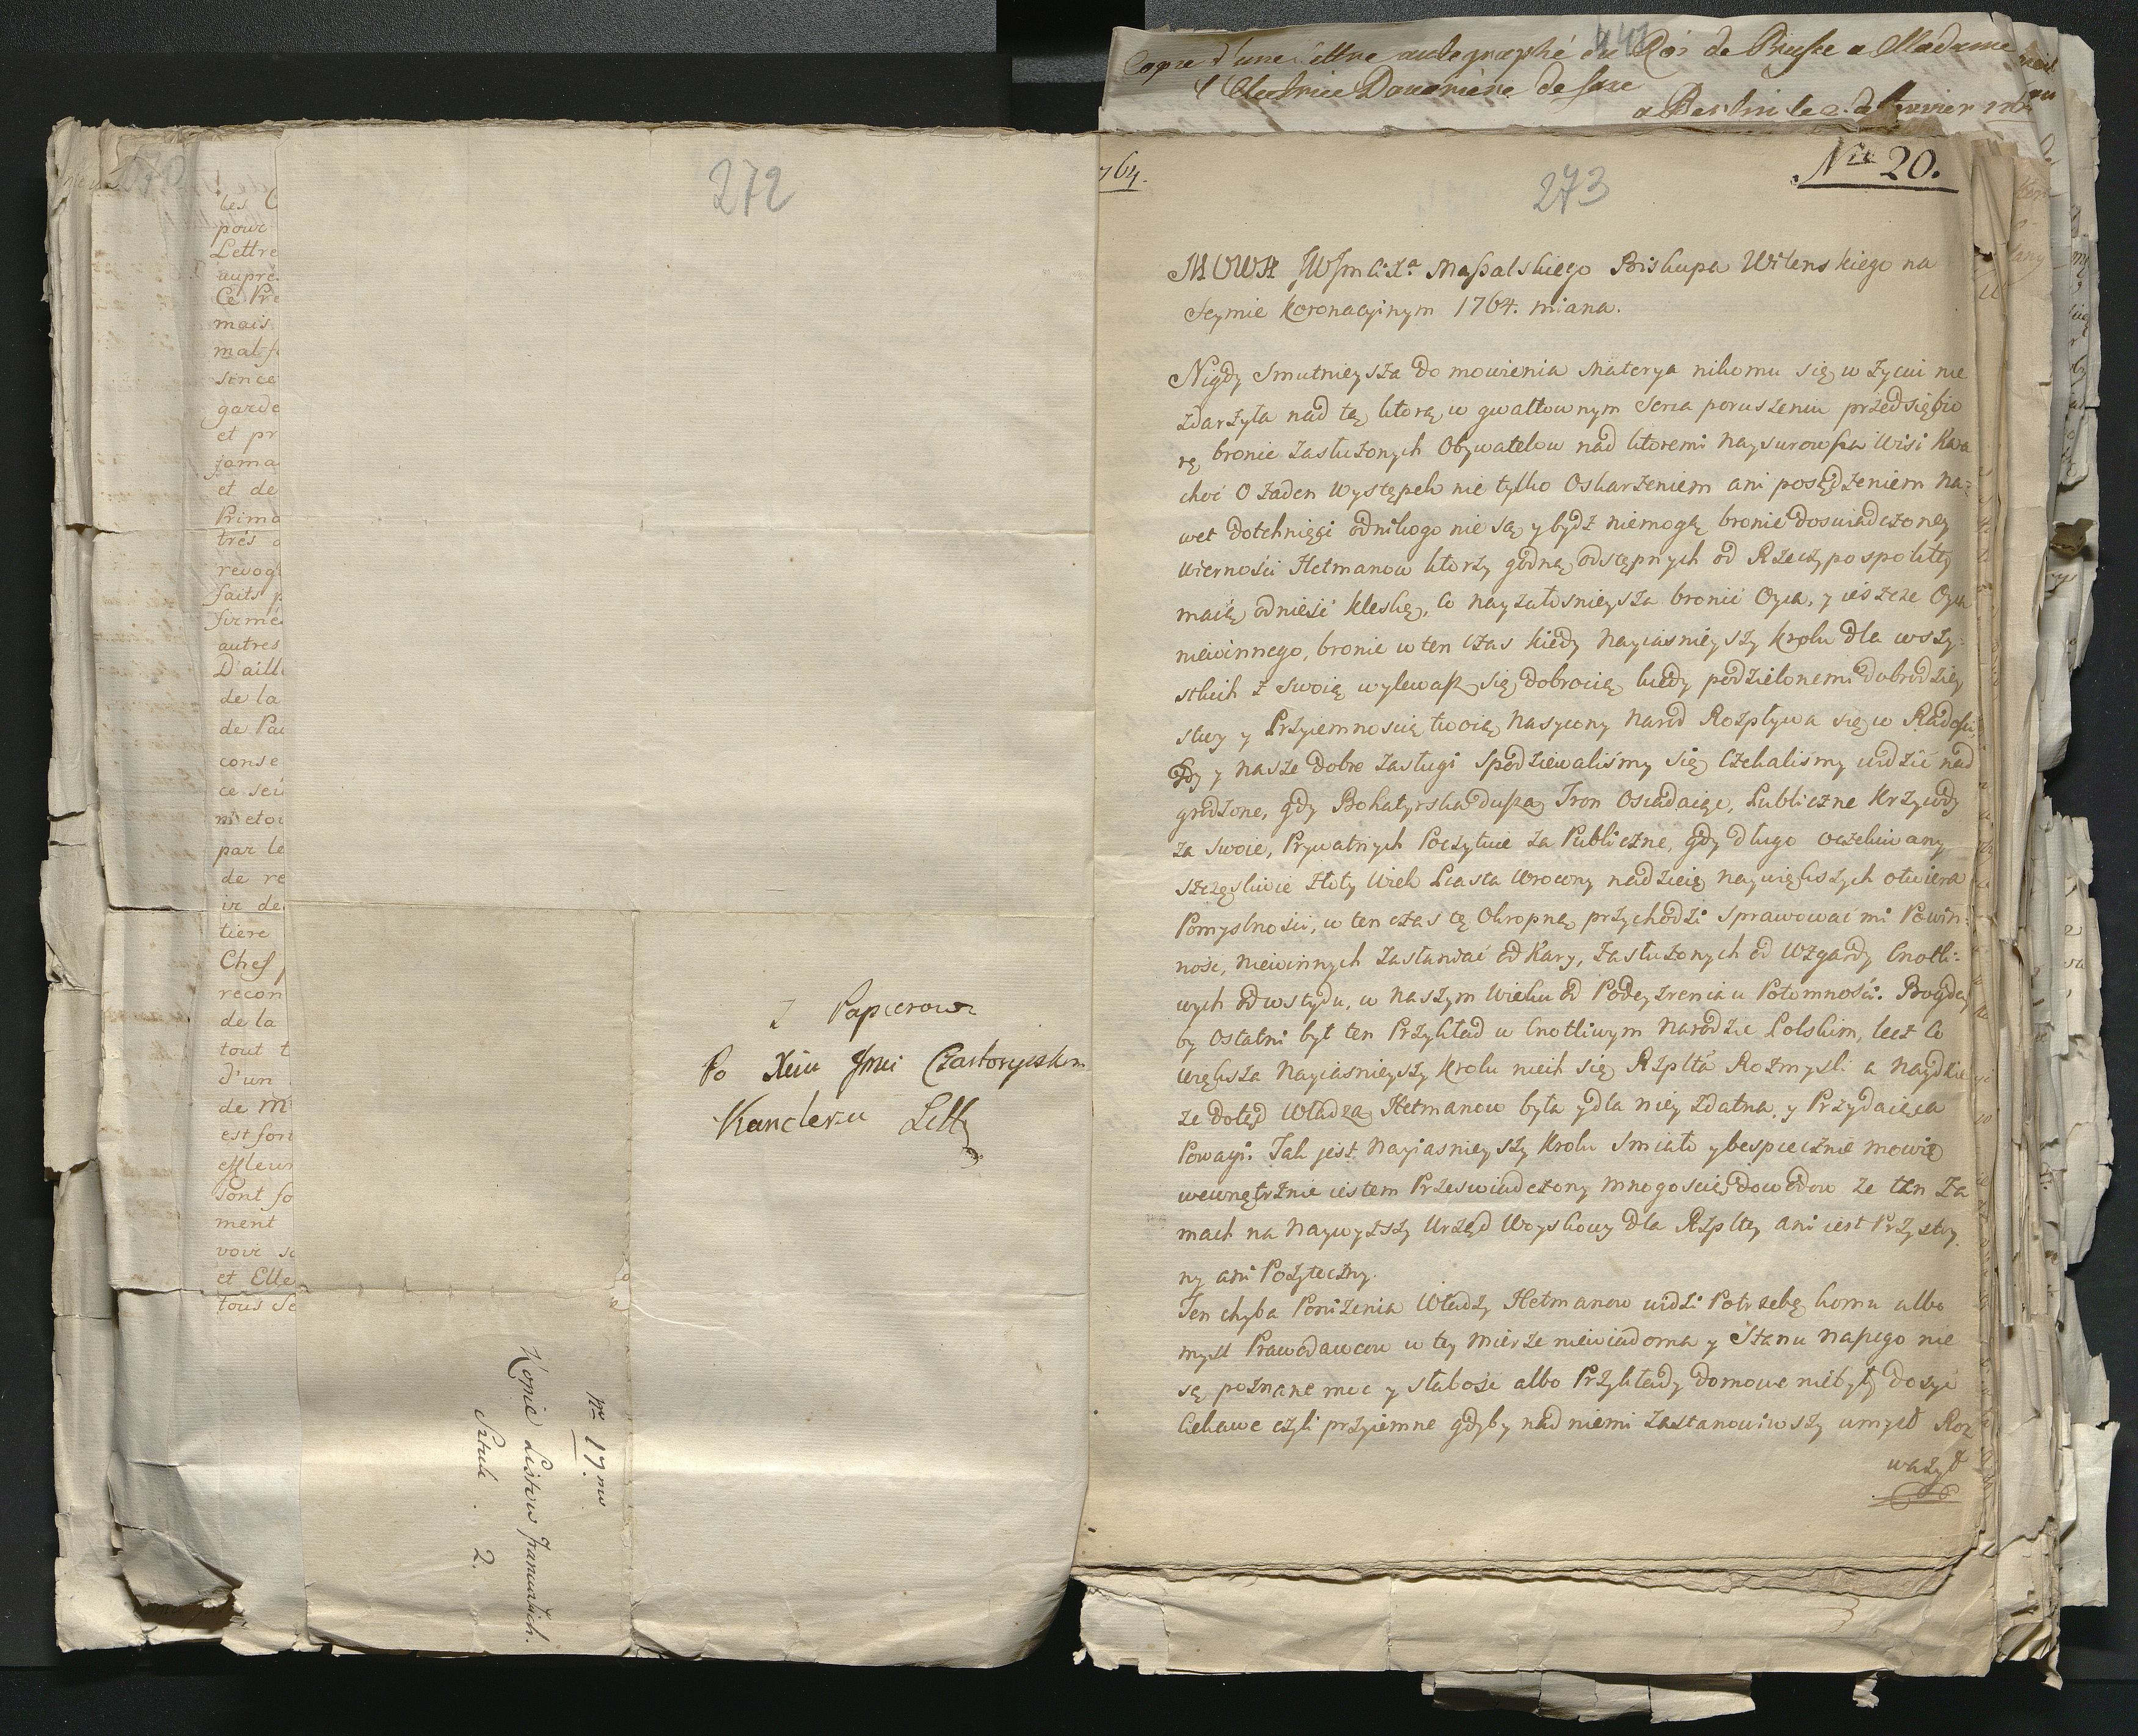 272
les
pour
Lettre
auprè
Ce Pre
mais
mal
since
garde
et pr
jama
et de
Prima
très
revoq
faits
firmé
autres
D'aill
de la
de Pa
conse
ce
par le
de re
ir de
tière
Chef
recon
de la
tout t
d'un
de
est
sont
ment
voir
et Elle
tous
Z Papierow
Po Xciu Jmci Czartoryskim
Kanclerzu
Nro 17mo
Kopie Listow Francuskich.
Sztuk 2.
Copie d'une lettre autographe du Roi de Prusse a Madame
l'Electrice Douariere de Saxe
a Berlin le
764.
Nro 20.
273
MOWA Massalskiego Biskupa Wilenskiego na
Seymie Koronacyinym 1764. miana.
Nigdy Smutnieysza Do mowienia Materya nikomu się w zyciu nie
zdarzyła nad tę ktorą w gwałtownym Serca poruszeniu przedsiębio
rę bronic zasłuzonych Obywatelow nad ktoremi naysurowsza Wisi Kara
choć O zaden Występek nie tylko Oskarzeniem ani posądzeniem na=
wet dotchnięci od nikogo nie są y bydz niemogą bronic doswiadczoney
wierności Hetmanow ktorzy odstępnych od Rzeczypospolitey
maią odnieść klęskę, Co nayzałosnieysza bronić Oyca, y ieszcze Oyca
niewinnego, bronic w ten czas kiedy Nayiasnieyszy Krolu dla wszy=
stkich z swoią wylewasz się dobrocią kiedy podzielonemi dobrodziey
stwy y Przyiemnoscią twoią Nasycony Narod Rozpływa się w Radości,
gdy y nasze dobre zasługi Spodziewaliśmy się Czekaliśmy widzić nad
grodzone, gdy Bohatyrska dusza Tron Osiadaiąc, Publiczne Krzywdy
za swoie, Prywatnych Poczytuie za Publiczne, gdy długo oczekiwany
szczęsliwie złoty Wiek Piasta wrocony nadzieię naywiększych otwiera
Pomyslności, w ten czas tę Okropną przychodzi sprawować mi Powin=
ność, niewinnych zasłaniać od Kary, zasłużonych od Wzgardy Cnotli=
wych od wstydu, w naszym Wieku od Podeyzrenia u Potomności. Bogday
by Ostatni był ten Przykład w Cnotliwym Narodzie Polskim, lecz Co
większa Nayiasnieyszy Krolu niech się Rzplta Rozmysli a Naydzie
ze dotąd Władza Hetmanow była y dla niey zdatna, y Przydaiąca
Powagi. Tak jest Nayiasnieyszy Krolu Smiało y bespiecznie mowię
wewnętrznie iestem Przeswiadczony mnogością dowodow ze ten Za
mach na Naywyższy Urząd Woyskowy dla Rzpltey ani iest Przystoy
ny ani Pożyteczny.
Ten chyba Ponizenia Władzy Hetmanow widzi Potrzebę komu albo
mysl Prawodawcow w tey mierze niewiadoma y Stanu naszego nie
są poznane moc y słabość albo Przykłady domowe nie były dosyć
Ciekawe czyli przyiemne gdyby nad niemi zastanowiwszy umysł Roz
ważył